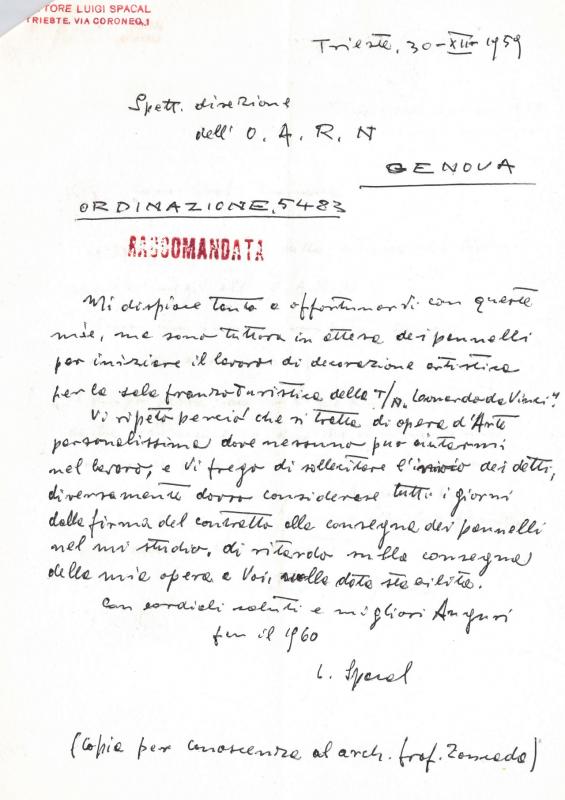 TORE LUIGI SPACAL
TRIESTE, VIA CORONEO, 1
Trieste, 30-XII-1959
Spett. direzione
dell' O. A. R. N
GENOVA
ORDINAZIONE, 5483
RACCOMANDATA
Mi dispiace tanto a offortunarvi con queste
mie, ma sono tuttora in attesa dei pannelli
per iniziare il lavoro di decorazione artistica
per la sala pranzo turistica della T/n "Leonardo da Vinci".
Vi ripeto perciò che si tratta di opera d'Arte
personalissima dove nessuno può aiutarmi
nel lavoro, e Vi prego di sollecitare l'invio dei detti,
diversamente dovrò considerare tutti i giorni
dalla firma del contratto alla consegna dei pannelli
nel mi studio, di ritardo sulla consegna
della mia opera a Voi, nella data stabilita.
Con cordiali saluti e migliori Auguri
per il 1960
L. Spacal
(Copia per conoscenza al arch. prof. Zoncada)